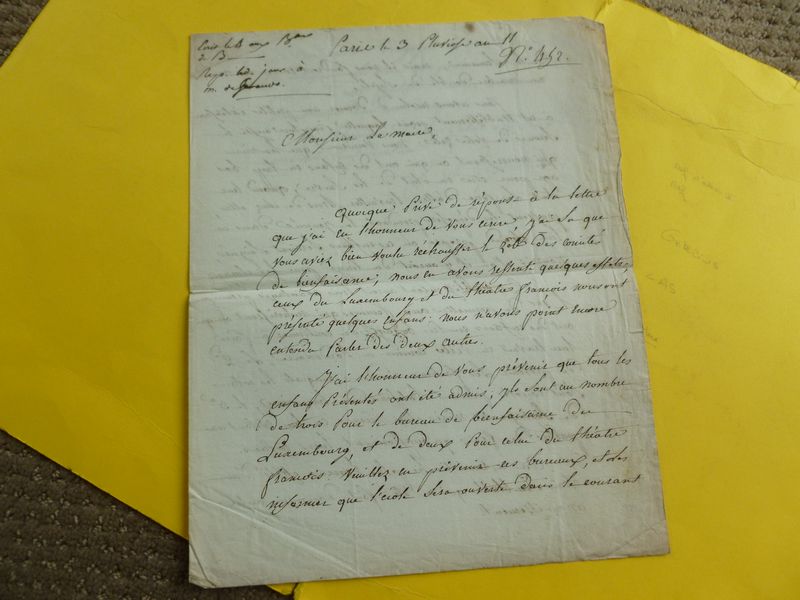 Paris le 3 Pluviose an 11
N.º 452.
Monsieur Le maire,
quoique privé de réponse à la lettre
que j'ai eu l'honneur de vous ecrire, j'ai su que
vous aviez bien voulu réchauffer le zele des comités
de bienfaisance; nous en avons ressenti quelques effets;
ceux du Luxembourg et du théatre françois nous ont
présenté quelques enfans: nous n'avons point encore
entendu parler des deux autres.
J'ai l'honneur de vous prévenir que tous les
enfans présentés ont été admis; ils sont au nombre
de trois pour le bureau de bienfaisance du
Luxembourg, et de deux pour celui du théatre
françois. Veuillez en prévenir ces bureaux, et les
informer que l'école sera ouverte dans le courant